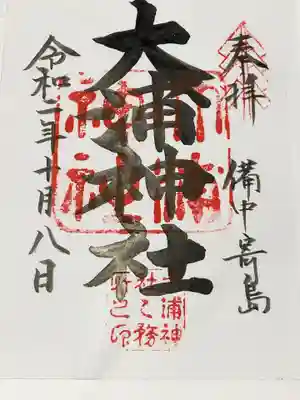 奉拝
備中寄島
大浦神社
令和二年十月八日
大浦神
社之務
所之印